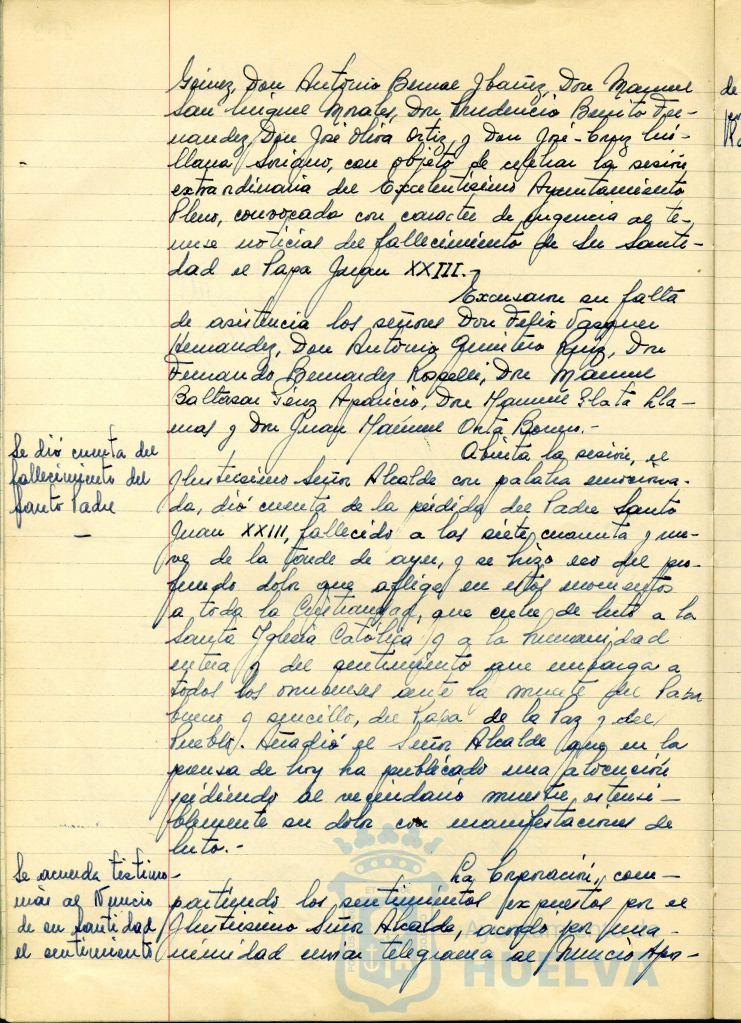 Gómez, Don Antonio Bernal Ibañez, Don Manuel
San Miguel Morales, Don Prudencio Benito Fer-
nandez, Don José Oliva Ortiz y Don José-Cruz Mi-
llana Soriano, con objeto de celebrar la sesión
extraordinaria del Excelentísimo Ayuntamiento
Pleno, convocada con caracter de urgencia al te-
nerse noticias del fallecimiento de Su Santi-
dad el Papa Juan XXIII.-
Excusaron su falta
de asistencia los señores Don Felix Vazquez
Hernandez, Don Antonio Ruiz, Don
Fernando Bernardez Don Manuel
Baltasar Pérez Aparicio, Don Manuel Plata Lla-
nas y Don Juan Manuel Orta
Se dió cuenta del
fallecimiento del
Santo Padre
-
Abierta la sesión, el
Ilustrisimo Señor Alcalde con palabra emociona-
da, dió cuenta de la pérdida del Padre Santo
Juan XXIII, fallecido a las siete, cuarenta y nue-
ve de la tarde de ayer, y se hizo eco del pro-
fundo dolor que aflige en estos momentos
a toda la Cristiandad, que cubre de luto a la
Santa Iglesia Católica y a la humanidad
entera y del sentimiento que embarga a
todos los onubenses ante la muerte del Papa
bueno y sencillo, del Papa de la Paz y del
Pueblo. Añadió el Señor Alcalde que en la
prensa de hoy ha publicado una alocución
pidiendo al vecindario muestre ostensi-
blemente su dolor con manifestaciones de
luto.-
Se acuerda testimo-
niar al Nuncio
de su Santidad
el sentimiento
La Corporación, com-
partiendo los sentimientos expuestos por el
Ilustrisimo Señor Alcalde, acordó por una-
nimidad enviar telegrama al Nuncio Apos-
de
HUELVA